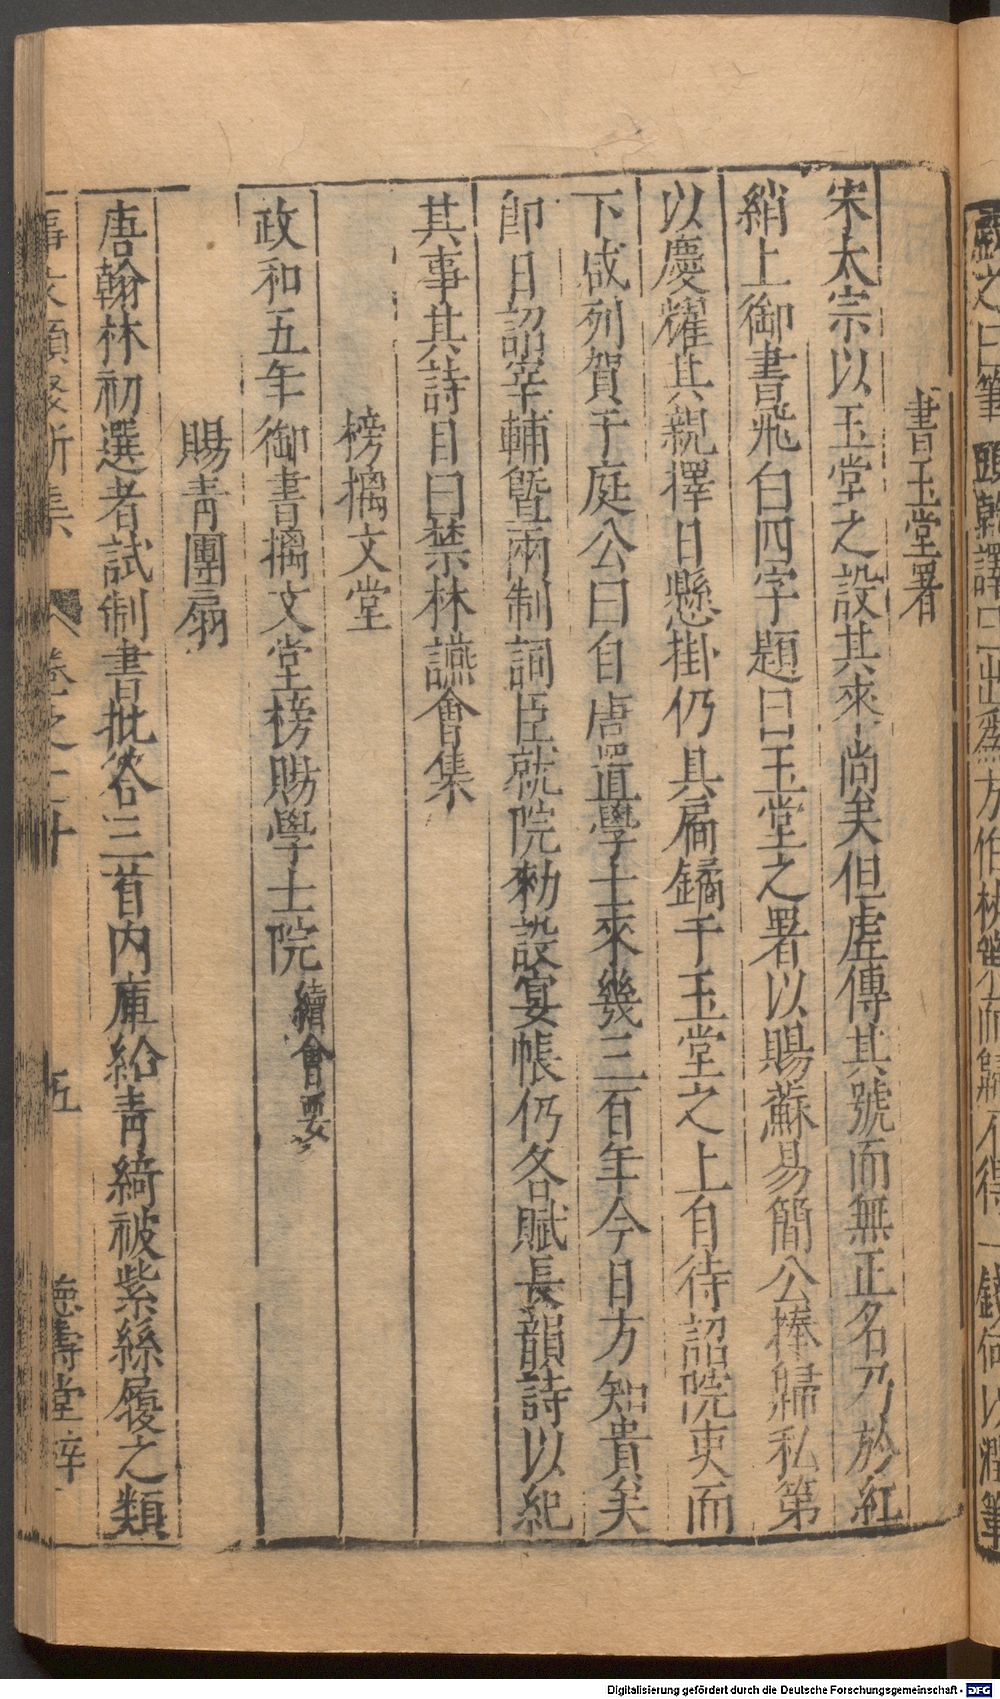 書玉堂署
宋太宗以玉堂之設其來尚矣但虛傳其號而無正名乃於紅
綃上御書飛白四字題曰玉堂之署以賜蘇易簡公捧歸私第
以慶耀其親擇日懸掛仍具扃鐍于玉堂之上自待詔院吏而
下咸列賀于庭公曰自唐置學士來幾三百年今日方知貴矣
即日詔宰輔曁兩制詞臣就院勑設宴帳仍各賦長韻詩以紀
其事其詩目曰禁林讌會集
榜摛文堂
政和五年御書摛文堂榜賜學士院續會要
賜青團扇
唐翰林初選者試制書批答三首內庫給青綺被紫絲履之類
事文類聚新集 卷之二十 五 德壽堂梓
Digitalisierung gefördert durch die Deutsche Forschungsgemeinschaft - DFG